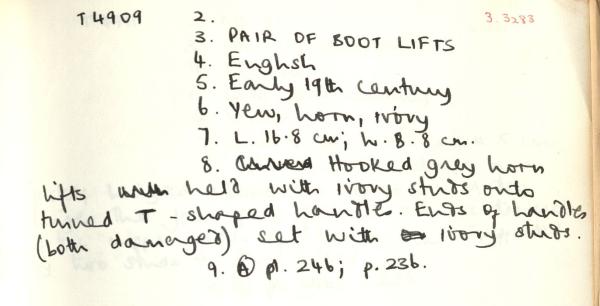 T4909 2. 3.3283
3. PAIR OF BOOT LIFTS
4. English
5. Early 19th century
6. Yew, horn, ivory
7. L. 16.8 cm; W. 8.8 cm.
8. Hooked grey horn
lifts held with ivory studs onto
turned T-shaped handles. Ends of handles
(both damaged) set with ivory studs.
9. A pl. 246; p. 236.